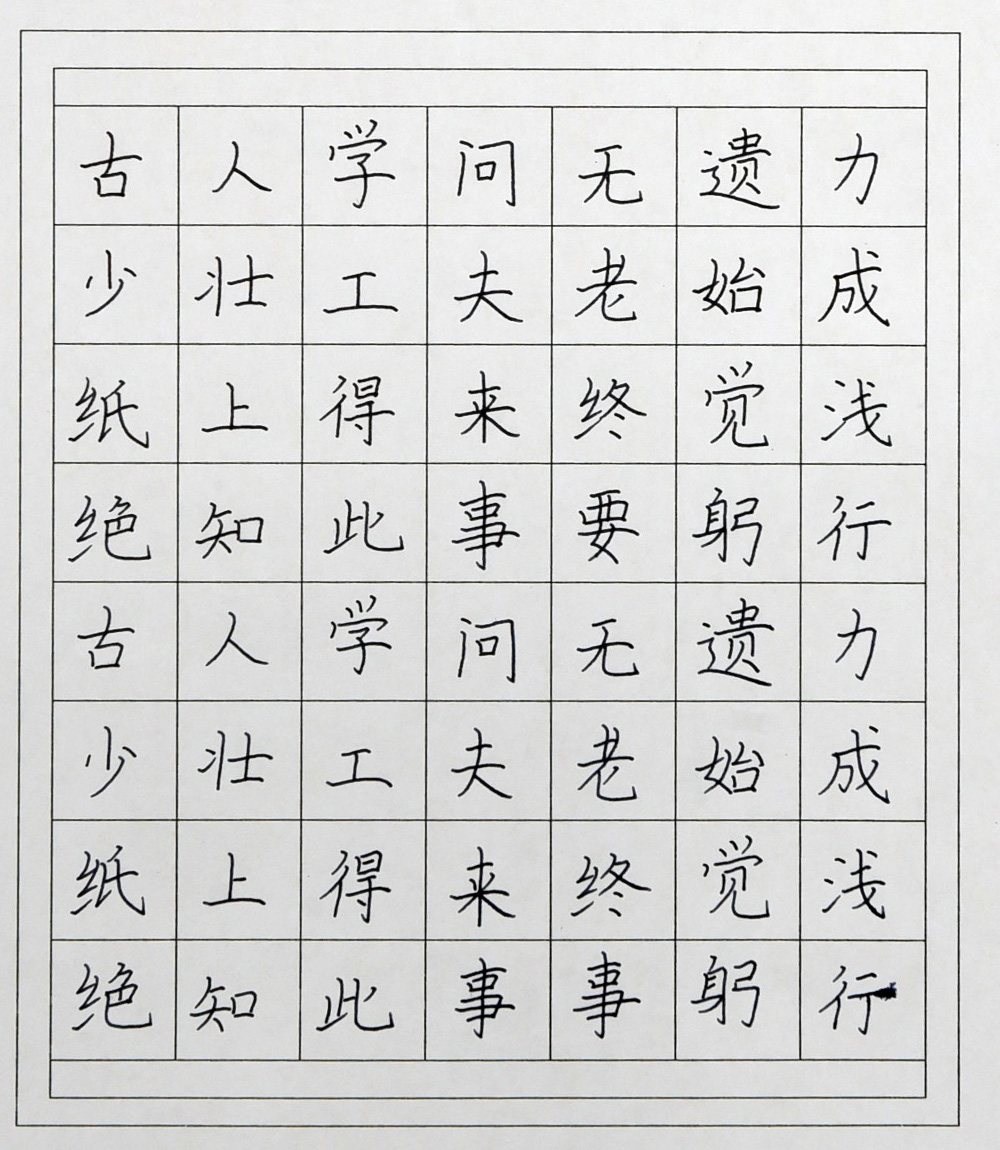 古人学问无遗力
少壮工夫老始成
纸上得来终觉浅
绝知此事要躬行
古人学问无遗力
少壮工夫老始成
纸上得来终觉浅
绝知此事事躬行